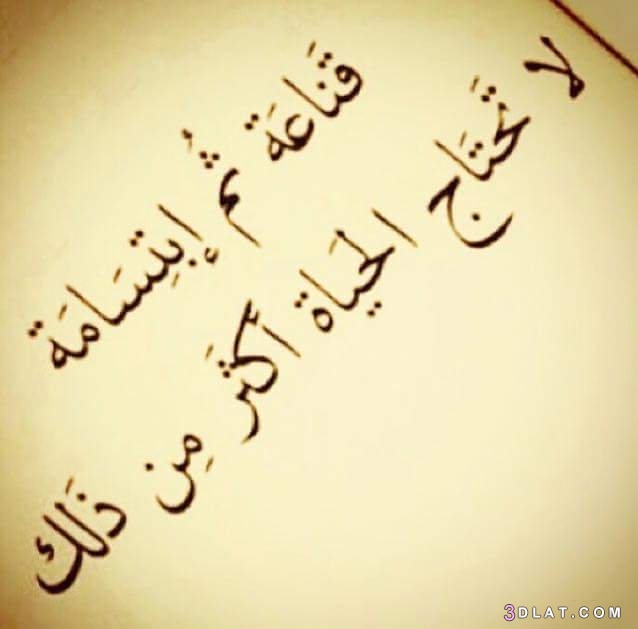 قَناعَة ثُم إبتِسَامَة
لا تَحتَاج الحَياة أكثَر مِن ذَلك
3DLAT.COM